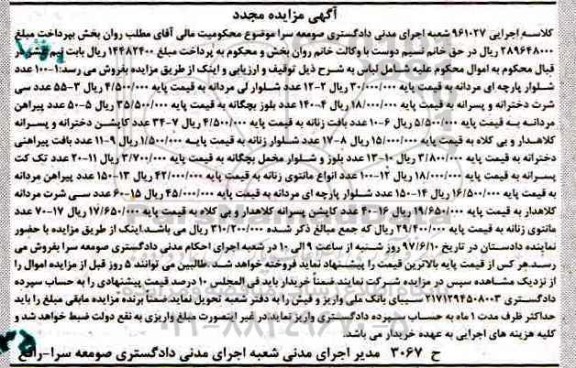 آگهی مزایده مجدد
کلاسه اجرایی ۹۶۱۰۲۷ شعبه اجرای مدنی دادگستری صومعه سرا موضوع محکومیت مالی آقای مطلب روان بخش بپرداخت مبلغ
۲۸۹۶۴۸۰۰۰ ریال در حق خانم نسیم دوست با وکالت خانم روان بخش و محکوم به پرداخت مبلغ ۱۴۴۸۲۴۰۰ ریال بابت نیم عشر در
قبال محکوم به اموال محکوم علیه که شامل لباس به شرح ذیل توقیف و ارزیابی و اینک از طریق مزایده بفروش می رسد:۱-۱۰۰ عدد
شلوار پارچه ای مردانه به قیمت پایه ۳۰/۰۰۰/۰۰۰ ریال ۲-۱۲ عدد شلوار لی مردانه به قیمت پایه ۴/۵۰۰/۰۰۰ ریال ۳-۵۵ عدد سی
شرت دخترانه و پسرانه به قیمت پایه ۱۸/۰۰۰/۰۰۰ ریال ۴-۱۴۰ عدد بلوز بچگانه به قیمت پایه ۳۵/۵۰۰/۰۰۰ ریال ۵-۵۰ عدد پیراهن
مردانه به قیمت پایه ۵/۵۰۰/۰۰۰ ریال ۶-۱۰ عدد بافت زنانه به قیمت پایه ۴/۵۰۰/۰۰۰ ریال ۷-۳۴ عدد کاپشن دخترانه و پسرانه
کلاهدار و بی کلاه به قیمت پایه ۱۵/۰۰۰/۰۰۰ ریال ۸-۱۷ عدد شلوار زنانه به قیمت پایه ۱/۵۰۰/۰۰۰ ریال ۹-۱۱ عدد بافت پیراهنی
دخترانه به قیمت پایه ۳/۸۰۰/۰۰۰ ریال ۱۰-۱۳ عدد بلوز و شلوار مخمل بچگانه به قیمت پایه ۳/۷۰۰/۰۰۰ ریال ۱۱-۲۰ عدد تک کت
پسرانه به قیمت پایه ۱۸/۰۰۰/۰۰۰ ریال ۱۲-۱۰۰ عدد انواع مانتوی زنانه به قیمت پایه ۴۲/۰۰۰/۰۰۰ ریال ۱۳-۱۵۰ عدد پیراهن مردانه
به قیمت پایه ۱۶/۵۰۰/۰۰۰ ریال ۱۴-۱۵۰ عدد شلوار پارچه ای مردانه به قیمت پایه ۴۵/۰۰۰/۰۰۰ ریال ۱۵-۶۰ عدد سی شرت مردانه
کلاهدار به قیمت پایه ۱۹/۶۵۰/۰۰۰ ریال ۱۶-۴۰ عدد کاپشن پسرانه کلاهدار و بی کلاه به قیمت پایه ۱۷/۶۵۰/۰۰۰ ریال ۱۷-۷۰ عدد
مانتوی زنانه به قیمت پایه ۲۹/۴۰۰/۰۰۰ ریال که جمع مبالغ ذکر شده ۳۱۰/۲۰۰/۰۰۰ ریال می باشد.اینک از طریق مزایده با حضور
نماینده دادستان در تاریخ ۹۷/۶/۱۰ روز شنبه از ساعت ۹ الی ۱۰ در شعبه اجرای احکام مدنی دادگستری صومعه سرا بفروش می
رسد.هر کس از قیمت پایه بالاترین قیمت را پیشنهاد نماید فروخته خواهد شد.طالبین می توانند ۵ روز قبل از مزایده اموال را
از نزدیک مشاهده سپس در مزایده شرکت نمایند ضمناً خریدار باید فی المجلس ۱۰ درصد قیمت پیشنهادی را به حساب سپرده
دادگستری ۲۱۷۱۲۹۴۵۰۸۰۰۳ سیبای بانک ملی واریز و فیش را به دفتر شعبه تحویل نماید.ضمناً برنده مزایده مابقی مبلغ را باید
حداکثر ظرف مدت ۱ ماه به حساب سپرده دادگستری واریز نماید.در غیر اینصورت مبلغ واریزی به نفع دولت ضبط خواهد شد و
کلیه هزینه های اجرایی به عهده خریدار می باشد.
ح ۳۰۶۷ مدیر اجرای مدنی شعبه اجرای مدنی دادگستری صومعه سرا-رافع